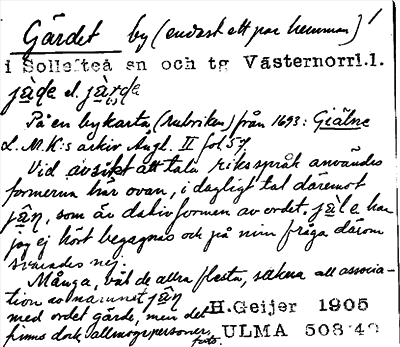 Gärdet by (endast ett par hemman) /
i Sollefteå sn och tg Västernorrl.l.
jäḍe el. järḍe
På en bykarta (Rubriken) från 1693: Giälne
L.M.K:s arkiv Ångl. II fol. 57.
Vid avsikt att tala riksspråk användes
formerna här ovan, i dagligt tal däremot
jän, som är dativformen av ordet. jäle har
jag ej hört begagnas och på min fråga därom
svarades nej.
Många, väl de allra flesta, sakna all associa-
tion av namnet jän
med ordet gärde, men det H.Geijer 1905
finns dock allmogepersoner, ULMA 508:40
foto.